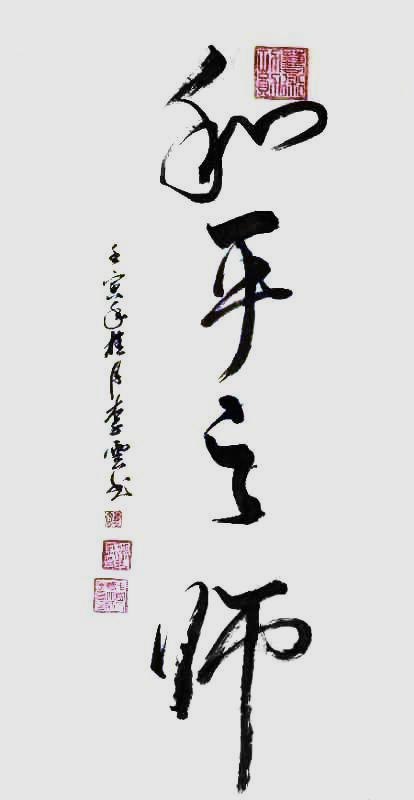 和平之师
壬寅年桂月李雲书